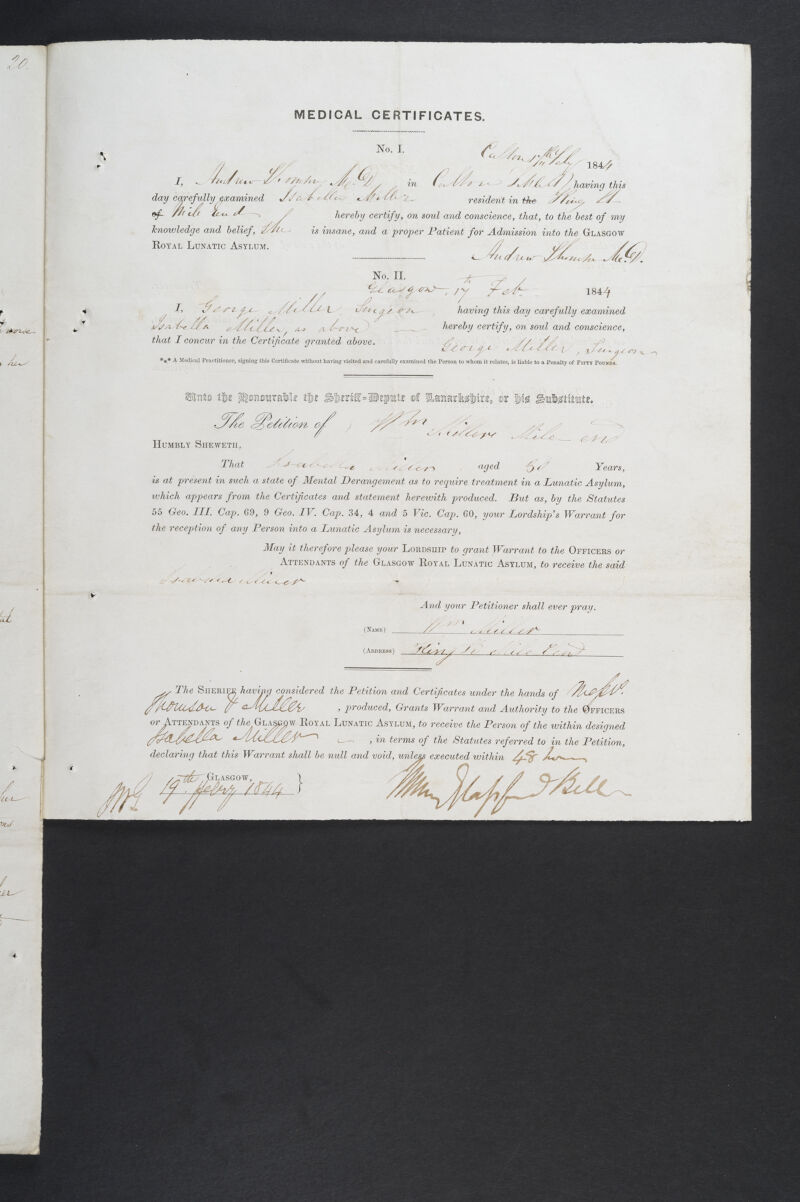 20.
MEDICAL CERTIFICATES.
No. I.
Calton 17th Feby 1844
I, Andrew Thomson M.D. in Calton having this
day carefully examined Isabella Miller resident in the King St
of Mile End hereby certify, on soul and conscience, that, to the best of my
knowledge and belief, She is insane, and a proper Patient for Admission into the GLASGOW
ROYAL LUNATIC ASYLUM.
Andrew Thomson M.D.
No. II.
Glasgow, 17th Feb. 1844
I, George Miller, Surgeon, having this day carefully examined
Isabella Miller, as above hereby certify, on soul and conscience,
that I concur in the Certificate granted above.
George Miller, Surgeon
*** A Medical Practitioner, signing this Certificate without having visited and carefully examined the Person to whom it relates, is liable to a Penalty of FIFTY POUNDS.
Unto the Honourable the Sheriff-Depute of Lanarkshire, or his Substitute.
The Petition of Wm Miller Mile end
HUMBLY SHEWETH,
That Isabella Miller aged Years,
is at present in such a state of Mental Derangement as to require treatment in a Lunatic Asylum,
which appears from the Certificates and statement herewith produced. But as, by the Statutes
55 Geo. III. Cap. 69, 9 Geo. IV. Cap. 34, 4 and 5 Vic. Cap. 60, your Lordship's Warrant for
the reception of any Person into a Lunatic Asylum is necessary,
May it therefore please your LORDSHIP to grant Warrant to the OFFICERS or
ATTENDANTS of the GLASGOW ROYAL LUNATIC ASYLUM, to receive the said
Isabella Miller
And your Petitioner shall ever pray.
(NAME) Wm Miller
(ADDRESS) King St Mile End
The SHERIFF having considered the Petition and Certificates under the hands of Messrs.
Thomson & Miller, produced, Grants Warrant and Authority to the OFFICERS
or ATTENDANTS of the GLASGOW ROYAL LUNATIC ASYLUM, to receive the Person of the within designed
Isabella Miller, in terms of the Statutes referred to in the Petition,
declaring that this Warrant shall be null and void, unless executed within 48 hours
GLASGOW,
19th Feby 1844
Bell
her
her
her